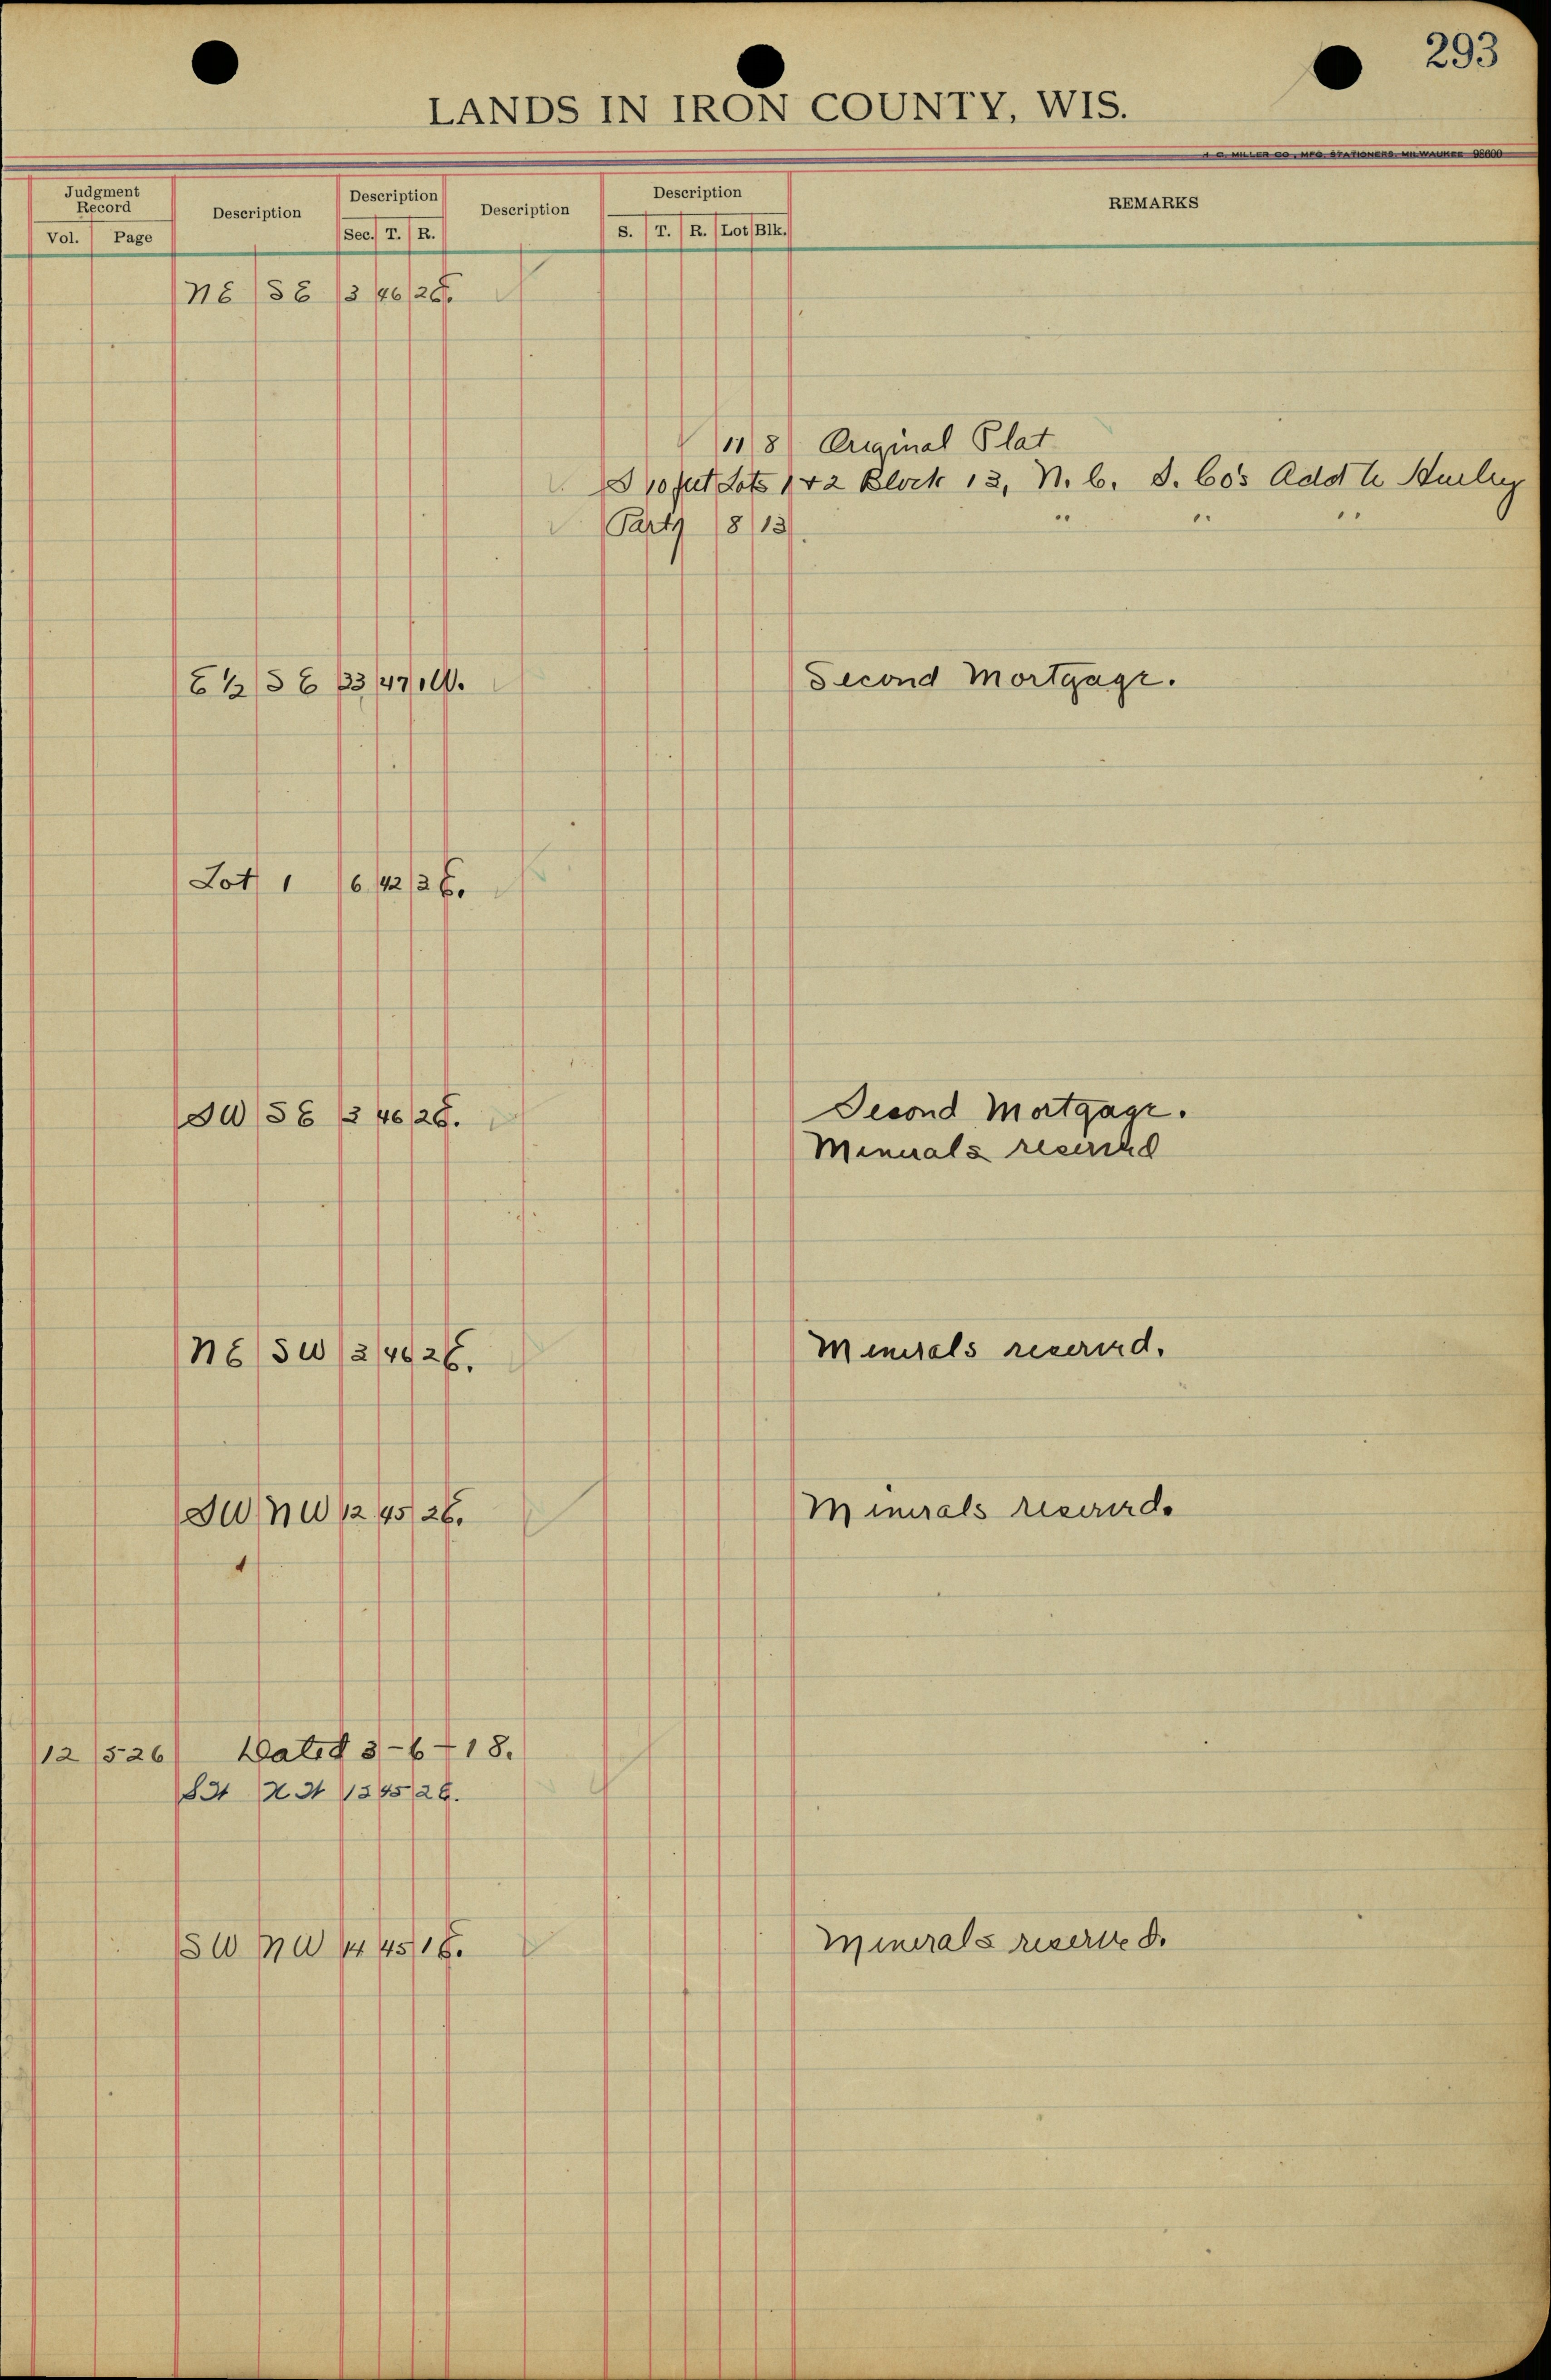 293
LANDS IN IRON COUNTY, WIS.
H. C. MILLER CO., MFG. STATIONERS, MILWAUKEE 98600
Judgment Record Description Description Description Description REMARKS
Vol. Page Sec. T. R. S. T. R. Lot Blk.
NE SE 3 46 2E.
11 8 Original Plat
S 10 feet Lots 1 & 2 Block 13, N. C. I. Co's Add to Hurley
Part of 8 13 " " "
E 1/2 SE 33 47 1W. Second Mortgage.
Lot 1 6 42 3E.
SW SE 3 46 2E. Second Mortgage.
Minerals reserved
NE SW 3 46 2E. Minerals reserved.
SW NW 12 45 2E. Minerals reserved.
12 526 Dated 3-6-18.
45 2E.
SW NW 14 45 1E. Minerals reserved.